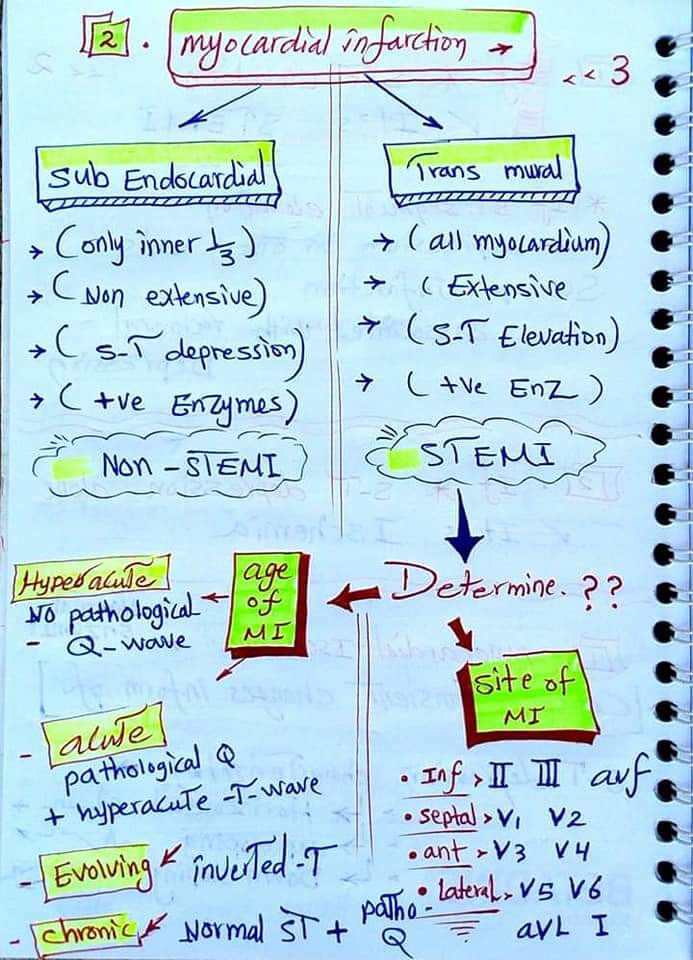 2 . myocardial infarction →
<< 3
Sub Endocardial
→ (only inner 1/3)
→ ( Non extensive)
→ ( S-T depression)
→ ( +ve Enzymes)
Non - STEMI
Trans mural
→ ( all myocardium)
→ ( Extensive
→ ( S-T Elevation)
→ ( +ve EnZ )
STEMI
Determine. ??
age
of
MI
Hyperacute
No pathological
- Q-wave
- acute
pathological Q
+ hyperacute -T-wave
- Evolving inverted -T
- chronic Normal ST + patho-
Q
Site of
MI
• Inf > II III avf
• septal > V1 V2
• ant > V3 V4
• Lateral > V5 V6
aVL I